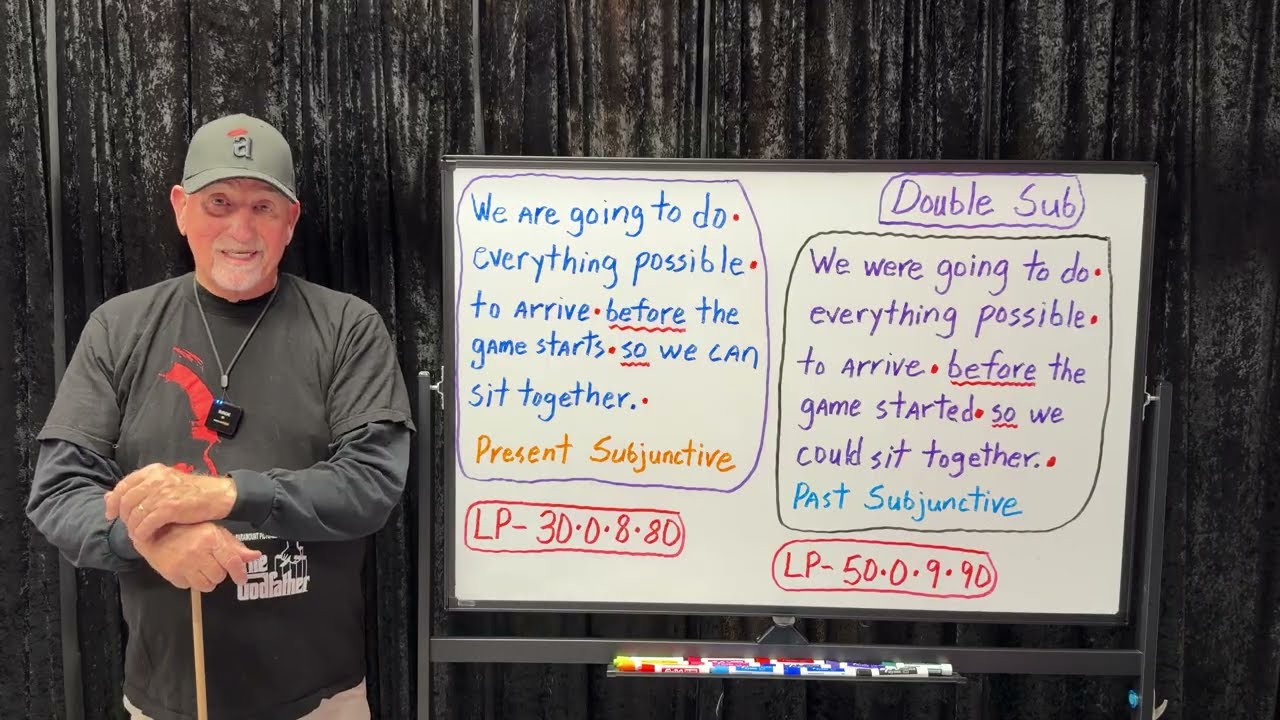 a
PARAMOUNT PICTURES
The
Godfather
We are going to do.
everything possible.
to arrive.before the
game starts.so we can
sit together..
Present Subjunctive
LP-30.0.8.80
Double Sub
We were going to do.
everything possible.
to arrive.before the
game started.so we
could sit together..
Past Subjunctive
LP-50.0.9.90